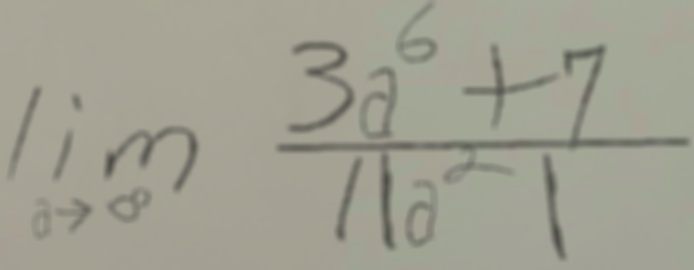 lim a→∞ (3a^6 + 7)/(11a^2 - 1)